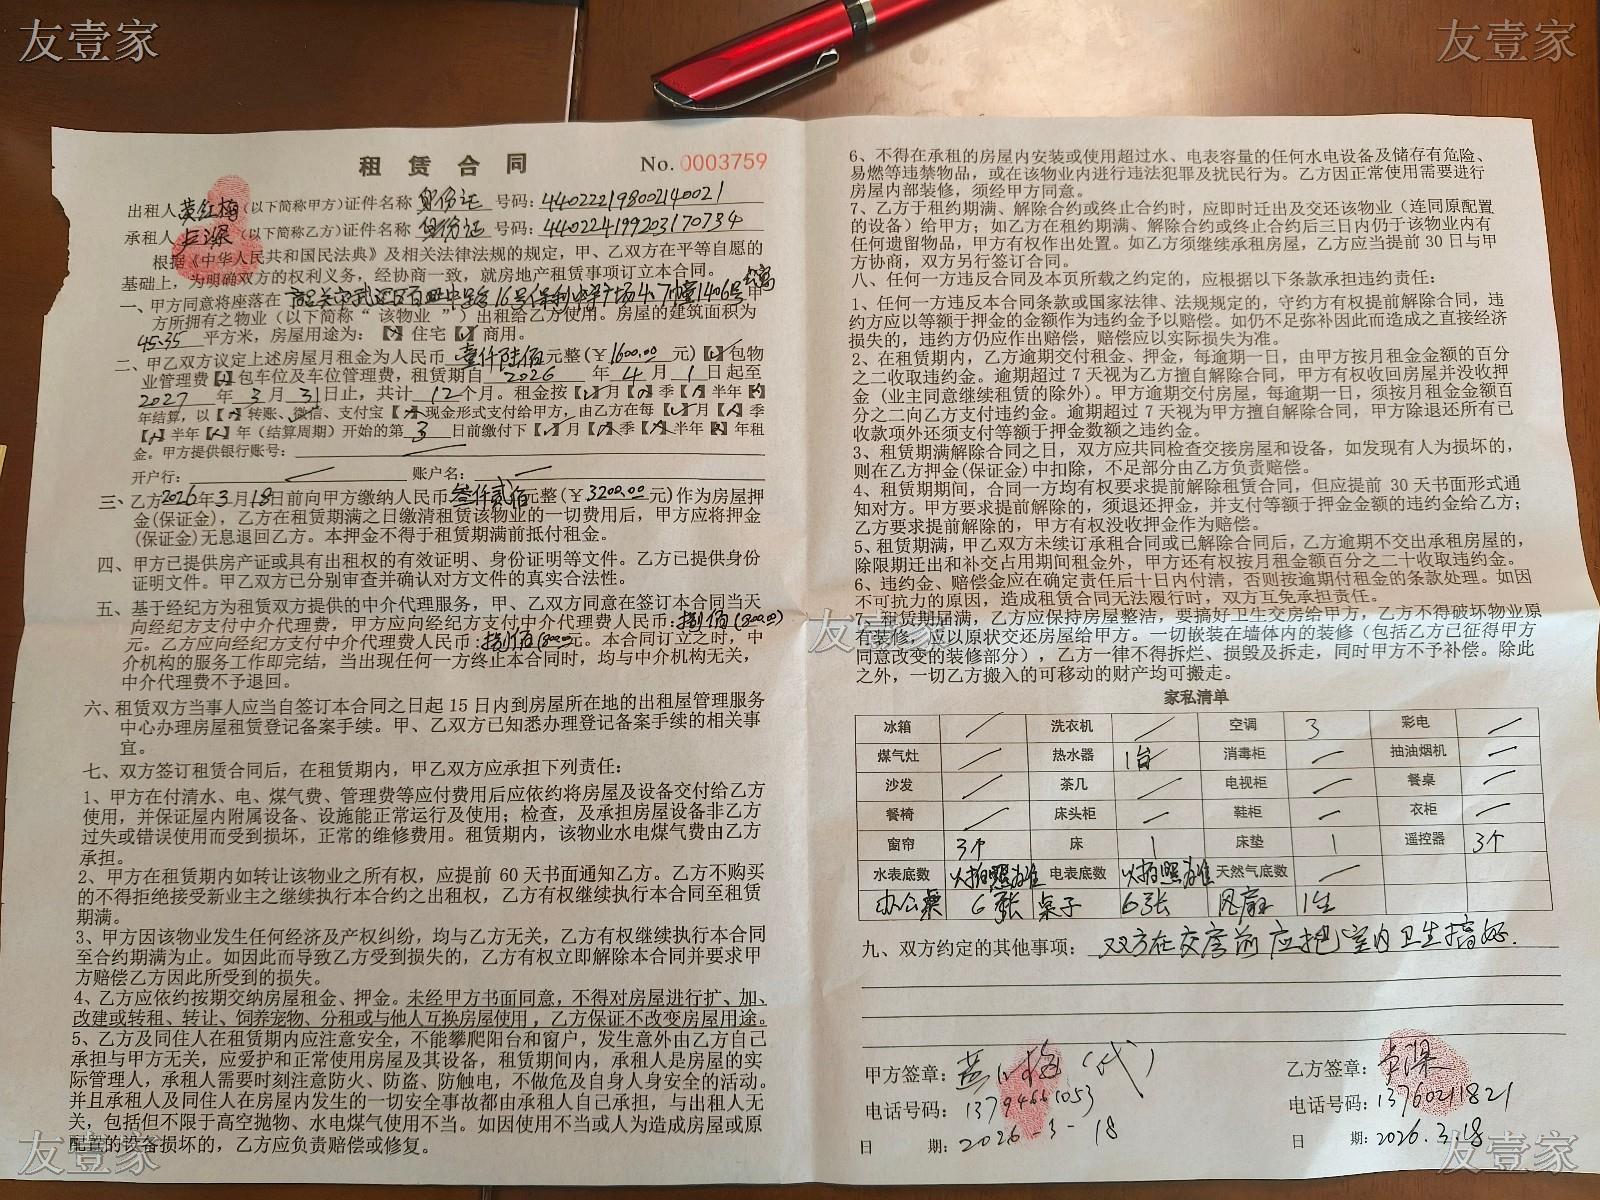 友壹家
友壹家
租赁合同 No.0003759
出租人黄红梅(以下简称甲方)证件名称 身份证 号码:440222198002140021
承租人 (以下简称乙方)证件名称 身份证 号码:440224199203170734
根据《中华人民共和国民法典》及相关法律法规的规定,甲、乙双方在平等自愿的
基础上,为明确双方的权利义务,经协商一致,就房地产租赁事项订立本合同。
一、甲方同意将座落在 16号保利 广场 1406号 甲
方所拥有之物业(以下简称“该物业”)出租给乙方使用。房屋的建筑面积为
45.35 平方米,房屋用途为:【 】住宅【 】商用。
二、甲乙双方议定上述房屋月租金为人民币 壹仟陆佰元整(¥1600.00 元)【√】包物
业管理费【 】包车位及车位管理费,租赁期自 2026 年 4 月 1 日起至
2027 年 3 月 31日止,共计 12 个月。租金按【√】月【 】季【 】半年【 】
年结算,以【 】转账、微信、支付宝【 】现金形式支付给甲方,由乙方在每【√】月【 】季
【 】半年【 】年(结算周期)开始的第 3 日前缴付下【√】月【 】季【 】半年【 】年租
金。甲方提供银行账号:
开户行: 账户名:
三、乙方2026年3月18日前向甲方缴纳人民币叁仟贰佰元整(¥3200.00元)作为房屋押
金(保证金),乙方在租赁期满之日缴清租赁该物业的一切费用后,甲方应将押金
(保证金)无息退回乙方。本押金不得于租赁期满前抵付租金。
四、甲方已提供房产证或具有出租权的有效证明、身份证明等文件。乙方已提供身份
证明文件。甲乙双方已分别审查并确认对方文件的真实合法性。
五、基于经纪方为租赁双方提供的中介代理服务,甲、乙双方同意在签订本合同当天
向经纪方支付中介代理费,甲方应向经纪方支付中介代理费人民币:捌佰(800.00)
元。乙方应向经纪方支付中介代理费人民币:捌佰(800.00元。本合同订立之时,中
介机构的服务工作即完结,当出现任何一方终止本合同时,均与中介机构无关,
中介代理费不予退回。
六、租赁双方当事人应当自签订本合同之日起 15 日内到房屋所在地的出租屋管理服务
中心办理房屋租赁登记备案手续。甲、乙双方已知悉办理登记备案手续的相关事
宜。
七、双方签订租赁合同后,在租赁期内,甲乙双方应承担下列责任:
1、甲方在付清水、电、煤气费、管理费等应付费用后应依约将房屋及设备交付给乙方
使用,并保证屋内附属设备、设施能正常运行及使用;检查,及承担房屋设备非乙方
过失或错误使用而受到损坏,正常的维修费用。租赁期内,该物业水电煤气费由乙方
承担。
2、甲方在租赁期内如转让该物业之所有权,应提前 60 天书面通知乙方。乙方不购买
的不得拒绝接受新业主之继续执行本合约之出租权,乙方有权继续执行本合同至租赁
期满。
3、甲方因该物业发生任何经济及产权纠纷,均与乙方无关,乙方有权继续执行本合同
至合约期满为止。如因此而导致乙方受到损失的,乙方有权立即解除本合同并要求甲
方赔偿乙方因此所受到的损失。
4、乙方应依约按期交纳房屋租金、押金。未经甲方书面同意,不得对房屋进行扩、加、
改建或转租、转让、饲养宠物、分租或与他人互换房屋使用,乙方保证不改变房屋用途。
5、乙方及同住人在租赁期内应注意安全,不能攀爬阳台和窗户,发生意外由乙方自己
承担与甲方无关,应爱护和正常使用房屋及其设备,租赁期间内,承租人是房屋的实
际管理人,承租人需要时刻注意防火、防盗、防触电,不做危及自身人身安全的活动。
并且承租人及同住人在房屋内发生的一切安全事故都由承租人自己承担,与出租人无
关,包括但不限于高空抛物、水电煤气使用不当。如因使用不当或人为造成房屋或原
配置的设备损坏的,乙方应负责赔偿或修复。
6、不得在承租的房屋内安装或使用超过水、电表容量的任何水电设备及储存有危险、
易燃等违禁物品,或在该物业内进行违法犯罪及扰民行为。乙方因正常使用需要进行
房屋内部装修,须经甲方同意。
7、乙方于租约期满、解除合约或终止合约时,应即时迁出及交还该物业(连同原配置
的设备)给甲方;如乙方在租约期满、解除合约或终止合约后三日内仍于该物业内有
任何遗留物品,甲方有权作出处置。如乙方须继续承租房屋,乙方应当提前 30 日与甲
方协商,双方另行签订合同。
八、任何一方违反合同及本页所载之约定的,应根据以下条款承担违约责任:
1、任何一方违反本合同条款或国家法律、法规规定的,守约方有权提前解除合同,违
约方应以等额于押金的金额作为违约金予以赔偿。如仍不足弥补因此而造成之直接经济
损失的,违约方仍应作出赔偿,赔偿应以实际损失为准。
2、在租赁期内,乙方逾期交付租金、押金,每逾期一日,由甲方按月租金金额的百分
之二收取违约金。逾期超过 7 天视为乙方擅自解除合同,甲方有权收回房屋并没收押
金(业主同意继续租赁的除外)。甲方逾期交付房屋,每逾期一日,须按月租金金额百
分之二向乙方支付违约金。逾期超过 7 天视为甲方擅自解除合同,甲方除退还所有已
收款项外还须支付等额于押金数额之违约金。
3、租赁期满解除合同之日,双方应共同检查交接房屋和设备,如发现有人为损坏的,
则在乙方押金(保证金)中扣除,不足部分由乙方负责赔偿。
4、租赁期期间,合同一方均有权要求提前解除租赁合同,但应提前 30 天书面形式通
知对方。甲方要求提前解除的,须退还押金,并支付等额于押金金额的违约金给乙方;
乙方要求提前解除的,甲方有权没收押金作为赔偿。
5、租赁期满,甲乙双方未续订承租合同或已解除合同后,乙方逾期不交出承租房屋的,
除限期迁出和补交占用期间租金外,甲方还有权按月租金额百分之二十收取违约金。
6、违约金、赔偿金应在确定责任后十日内付清,否则按逾期付租金的条款处理。如因
不可抗力的原因,造成租赁合同无法履行时,双方互免承担责任。
7、租赁期届满,乙方应保持房屋整洁,要搞好卫生交房给甲方,乙方不得破坏物业原
有装修,应以原状交还房屋给甲方。一切嵌装在墙体内的装修(包括乙方已征得甲方
同意改变的装修部分),乙方一律不得拆烂、损毁及拆走,同时甲方不予补偿。除此
之外,一切乙方搬入的可移动的财产均可搬走。
友壹家
家私清单
冰箱 洗衣机 空调 3 彩电
煤气灶 热水器 1台 消毒柜 抽油烟机
沙发 茶几 电视柜 餐桌
餐椅 床头柜 鞋柜 衣柜
窗帘 3个 床 1 床垫 1 遥控器 3个
水表底数 以拍照为准 电表底数 以拍照为准 天然气底数
办公桌 6张 桌子 6张 风扇 1台
九、双方约定的其他事项: 双方在交房前应把室内卫生搞好.
甲方签章: 黄红梅(代)
电话号码: 13794661053
日 期: 2026-3-18
乙方签章:
电话号码: 13760211821
日 期: 2026.3.18
友壹家
友壹家